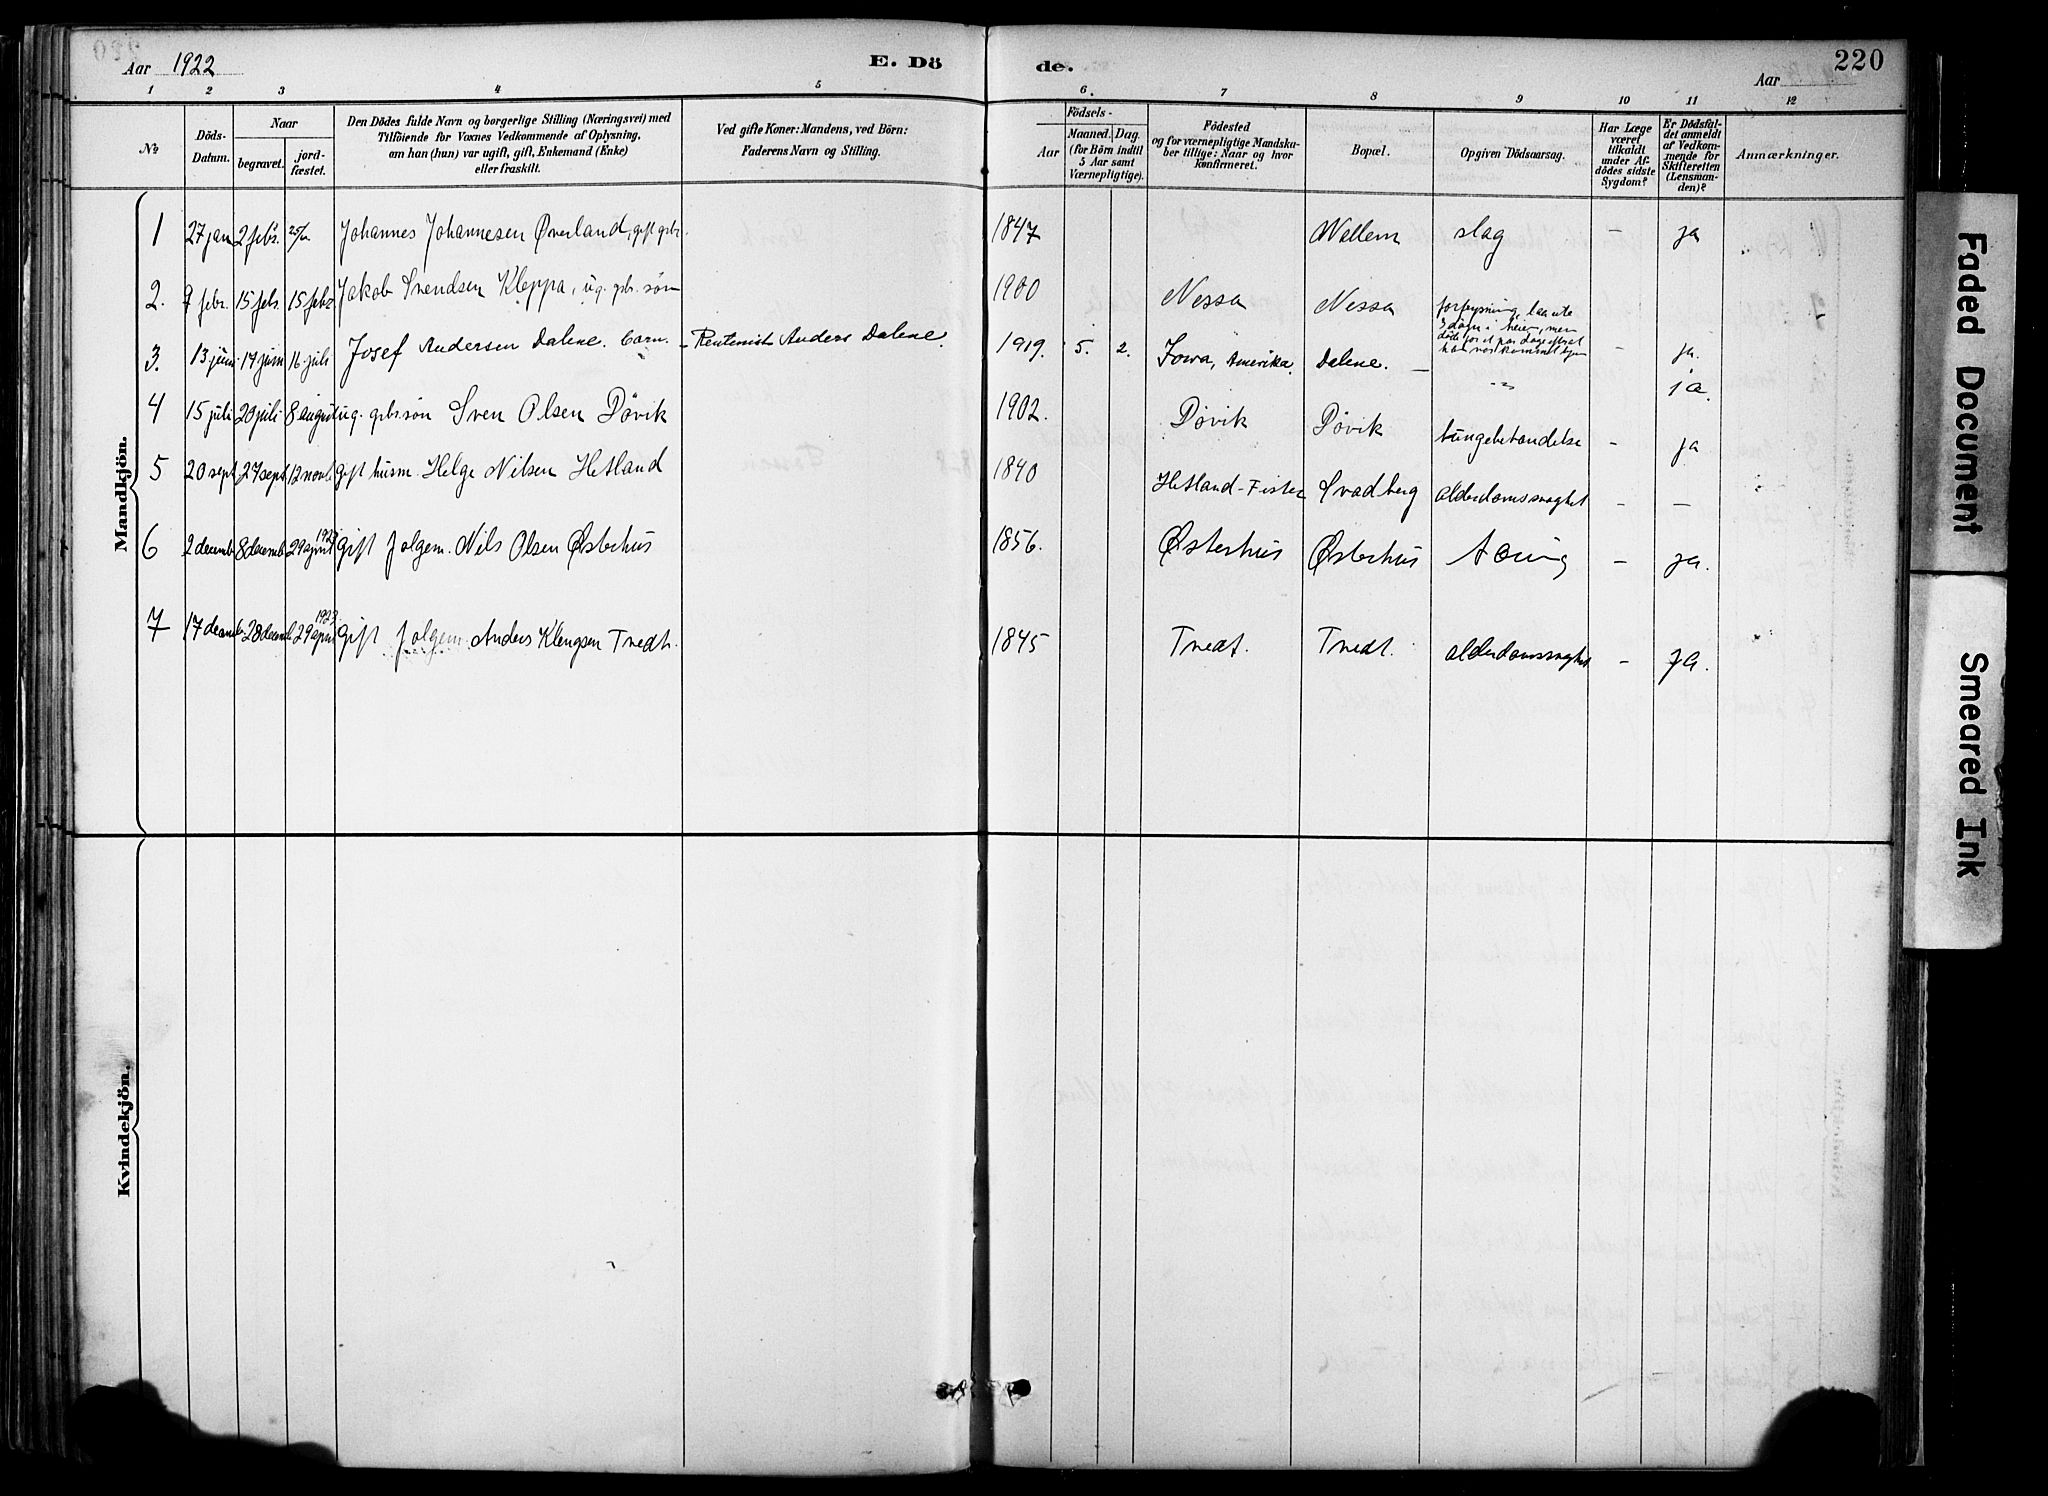 Aar 1922
E. Dö
de.
Aar
220
1 2 3 4 5 6. 7 8 9 10 11 12
No
Döds-
Datum.
Naar
begravet.
jord-
fæstet.
Den Dödes fulde Navn og borgerlige Stilling (Næringsvei) med
Tilföiende for Voxnes Vedkommende af Oplysning,
om han (hun) var ugift, gift, Enkemand (Enke)
eller fraskilt.
Ved gifte Koner: Mandens, ved Börn:
Faderens Navn og Stilling.
Födsels-
Aar
Maaned. Dag.
(for Börn indtil
5 Aar samt
Værnepligtige).
Födested
og for værnepligtige Mandska-
ber tillige: Naar og hvor
konfirmeret.
Bopæl.
Opgiven Dödsaarsag.
Har Læge
været
tilkaldt
under Af-
dödes sidste
Sygdom?
Er Dödsfal-
det anmeldt
af Vedkom-
mende for
Skifteretten
(Lensman-
den)?
Anmærkninger.
Mandkjön.
1 27 jan 2 febr. Johannes Johannesen Øverland, gift gbr. 1847 slag - ja
2. 9 febr. 15 febr. 15 febr Jakob Svendsen Kleppa, ug. gbr. søn 1900 Nessa Nessa
3 døgn i heien, men
3. 13 juni 17 juni 16 juli Josef Andersen Dalene. barn. - Rentenist Anders Dalene. 1919. 5. 2. Iowa, Amerika. Dalene. - ja.
ja
4 15 juli 20 juli 8 august ug. gbr. søn Sven Olsen Døvik 1902. Døvik Døvik - ja
5 20 sept 27 sept. 12 novb gift husm. Helge Nilsen Hetland 1840 Hetland-Fister Svadberg alderdomssvaghet - -
6 2 decemb 8 decemb 29 april 1923 gift Nils Olsen Østerhus 1856. Østerhus Østerhus tæring - ja.
7 17 decemb 28 decemb 29 april 1923 gift Anders Klengsen Tvedt. 1845 Tvedt. Tvedt. alderdomssvaghet - ja.
Kvindekjön.
Faded Document
Smeared Ink